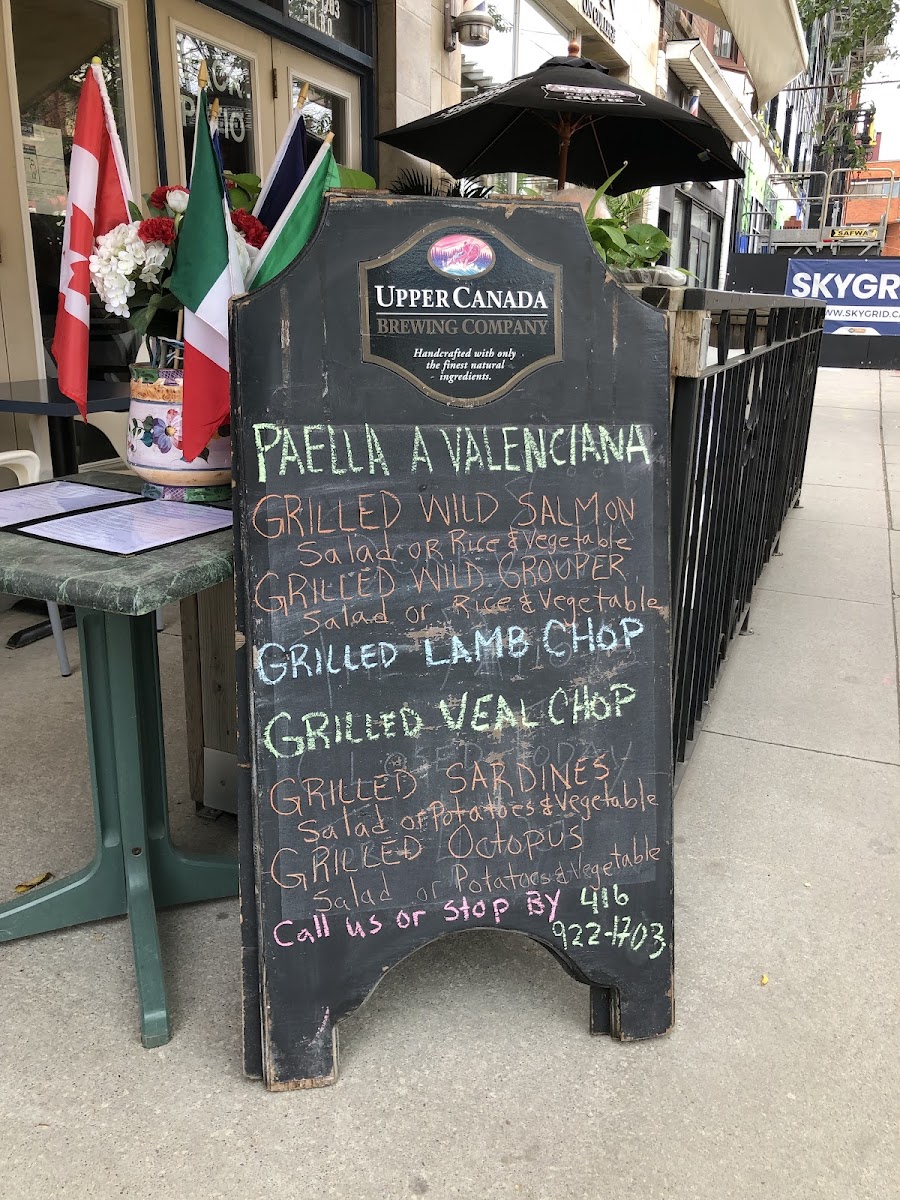 1703
L.L.B.O.
ON COLLEGE
UPPER CANADA
BREWING COMPANY
Handcrafted with only
the finest natural
ingredients.
PAELLA A VALENCIANA
GRILLED WILD SALMON
Salad OR Rice & Vegetable
GRILLED WILD GROUPER
Salad or Rice & Vegetable
GRILLED LAMB CHOP
GRILLED VEAL CHOP
GRILLED SARDINES
Salad or Potatoes & Vegetable
GRILLED OCTOPUS
Salad or Potatoes & Vegetable
Call us or stop By 416
922-1703
SAFWAY
SKYGR
WWW.SKYGRID.C